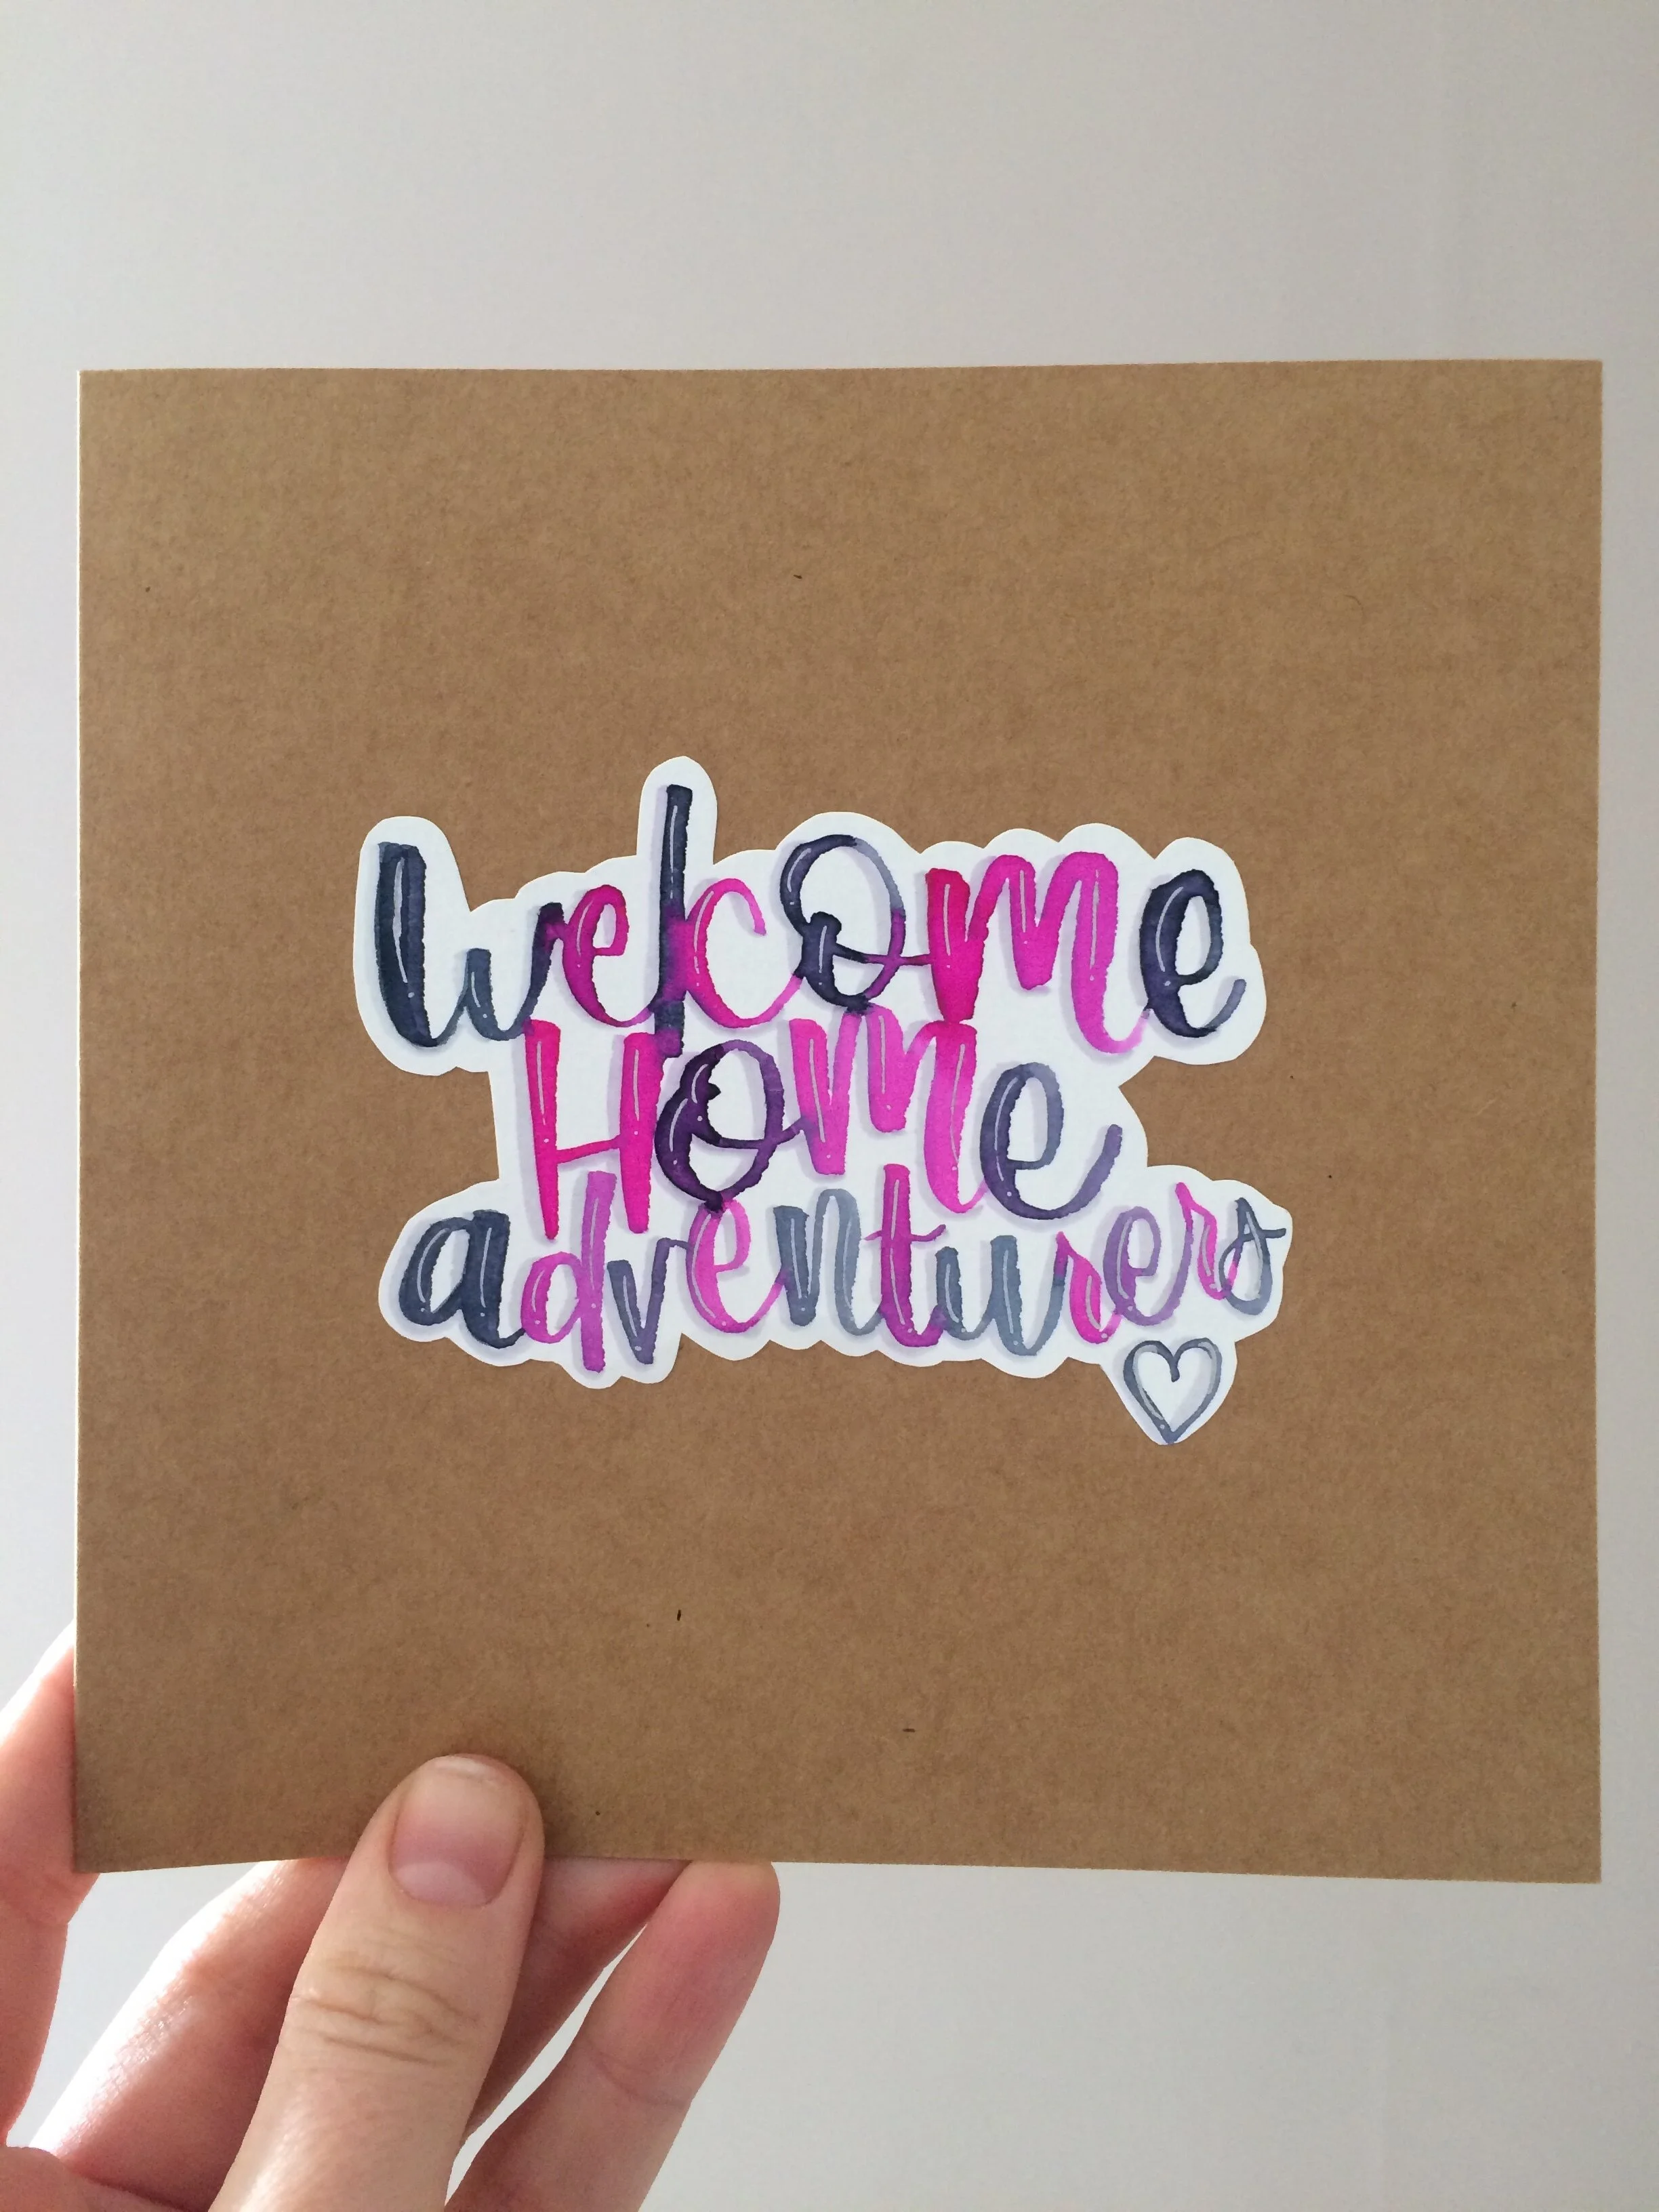 welcome
Home
adventurers